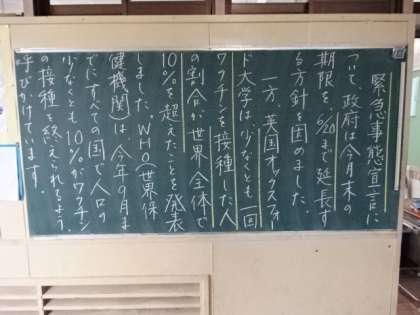 緊急事態宣言に
ついて、政府は今月末の
期限を、6/20まで延長す
る方針を固めました。
一方、英国オックスフォー
ド大学は、少なくとも一回
ワクチンを接種した人
の割合が世界全体で
10%を超えたことを発表
しました。WHO(世界保
健機関)は、今年9月ま
でにすべての国で人口の
少なくとも10%がワクチン
の接種を終えられるよう、
呼びかけています。